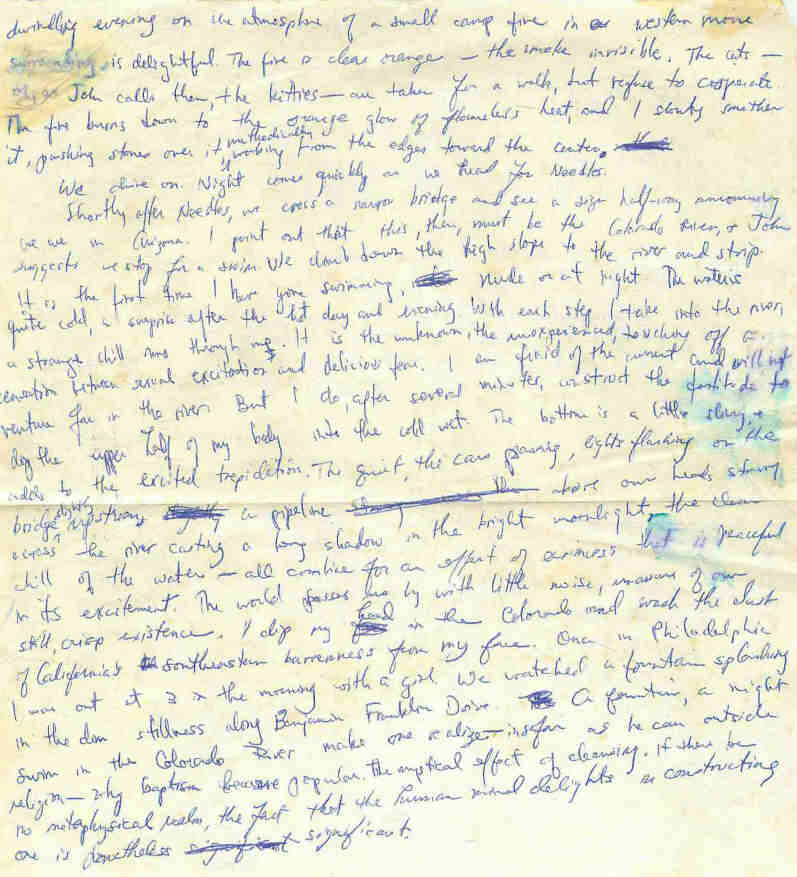 dwindling evening on the atmosphere of a small camp fire in western movie
surrounding is delightful. The fire is clear orange — the smoke invisible. The cats —
or, as John calls them, the kitties — are taken for a walk, but refuse to cooperate.
The fire burns down to the orange glow of flameless heat, and I slowly smother
it, pushing stones over it, methodically working from the edges toward the center.
We drive on. Night comes quickly as we head for Needles.
Shortly after Needles, we cross a narrow bridge and see a sign half-way announcing
we are in Arizona. I point out that this, then, must be the Colorado River, & John
suggests we stop for a swim. We climb down the high slope to the river and strip.
It is the first time I have gone swimming, nude or at night. The water is
quite cold, a surprise after the hot day and evening. With each step I take into the river,
a strange chill runs through me. It is the unknown, the unexperienced, touching off a
sensation between sexual excitation and delicious fear. I am afraid of the current and will not
venture far in the river. But I do, after several minutes, construct the fortitude to
dog the upper half of my body into the cold wet. The bottom is a little slimy, &
adds to the excited trepidation. The quiet, the cars passing, lights flashing on the
bridge slightly upstream, a pipeline above our heads strung
across the river casting a long shadow in the bright moonlight, the clean
chill of the water — all combine for an effect of eeriness that is peaceful
in its excitement. The world passes us by with little noise, unaware of our
still, crisp existence. I dip my head in the Colorado and wash the dust
of California's southeastern barrenness from my face. Once in Philadelphia
I was out at 3 in the morning with a girl. We watched a fountain splashing
in the dim stillness along Benjamin Franklin Drive. A fountain, a night
swim in the Colorado River make one realize — insofar as he can outside
religion — why baptism became popular. The mystical effect of cleansing. If there be
no metaphysical realm, the fact that the human mind delights in constructing
one is nonetheless significant.